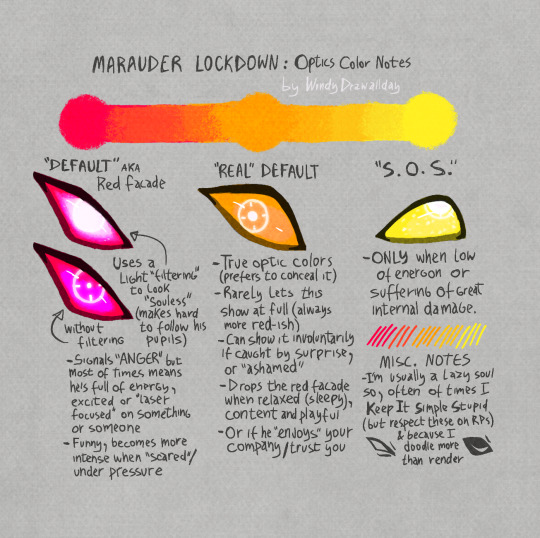 MARAUDER LOCKDOWN: Optics Color Notes
by WindyDrawallday
"DEFAULT" AKA
Red facade
Uses a
Light "filtering"
to Look
"Souless"
(makes hard
to follow his
pupils)
without
filtering
-Signals "ANGER" but
most of times means
he's full of energy,
excited or "laser
focused" on something
or someone
-Funny, becomes more
intense when "scared"/
under pressure
"REAL" DEFAULT
-True optic colors
(prefers to conceal it)
-Rarely Lets this
show at full (always
more red-ish)
-Can show it involuntarily
if caught by surprise,
or "ashamed"
-Drops the red facade
when relaxed (sleepy),
content and playful
-Or if he "enjoys" your
company/trust you
"S.O.S."
-ONLY when low
of energon or
suffering of great
internal damage.
MISC. NOTES
-I'm usually a Lazy soul
so, often of times I
Keep It Simple Stupid
(but respect these on RPs)
& because I
doodle more
than render